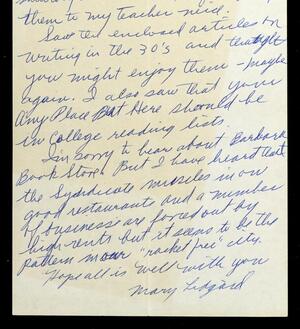 them to my teacher niece.
Saw ted enclosed articles on
writing in the 30's and thought
you might enjoy them – maybe
again. I also saw that your
Any Place But Here should be
in College reading lists.
I'm sorry to hear about Barbara
Book Store. But I have heard that
the Syndicate muscles in on
good restaurants and a number
of business are forced out by
high rents but it seems to be the
pattern in our "racket free" city.
Hope all is well with you
Mary Ledgard